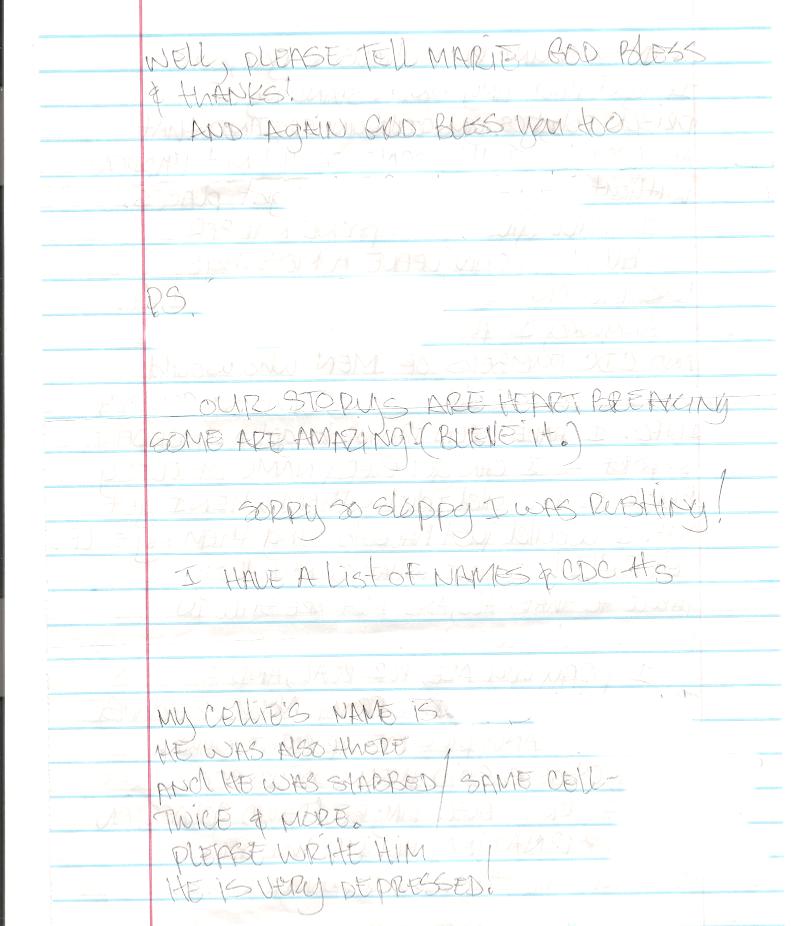 WELL, PLEASE TELL MARIE GOD BLESS
& THANKS!
AND AGAIN GOD BLESS you too
P.S.
OUR STORYS ARE HEART BREAKING
SOME ARE AMAZING! (BLIEVE it.)
SORRY SO SLOPPY I WAS RUSHING!
I HAVE A List of NAMES & CDC #S
MY CELLIE'S NAME IS
HE WAS ALSO tHERE
AND HE WAS STABBED / SAME CELL-
TWICE & MORE.
PLEASE WRITE HIM
HE IS VERY DEPRESSED!